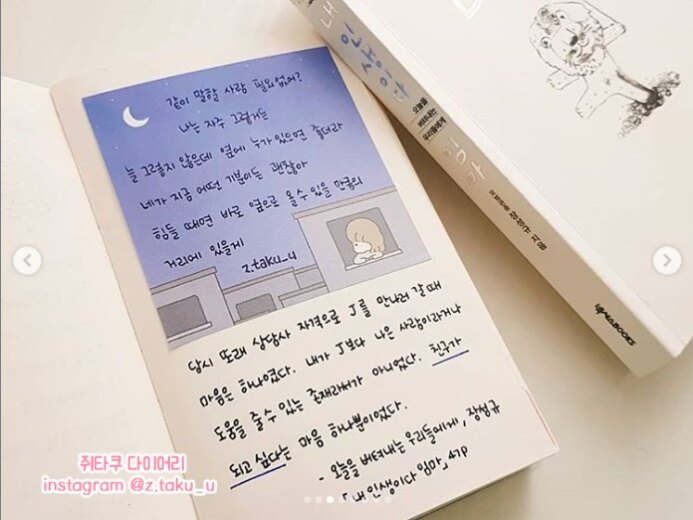 같이 말할 사람 필요없어?
나는 자주 그렇거든
늘 그렇지 않은데 옆에 누가 있으면 좋더라
네가 지금 어떤 기분이든 괜찮아
힘들 때면 바로 옆으로 올 수 있을 만큼의
거리에 있을게
z.taku_u
당시 또래 상담사 자격으로 J를 만나러 갈 때
마음은 하나였다. 내가 J보다 나은 사람이라거나
도움을 줄 수 있는 존재라서가 아니었다. 친구가
되고 싶다는 마음 하나뿐이었다.
- 오늘을 버텨내는 우리들에게, 장성규
「내 인생이다 임마」, 47p
내 인생이다 임마
오늘을
버텨내는
우리들에게
장성규 지음
쥐타쿠 다이어리
instagram @z.taku_u